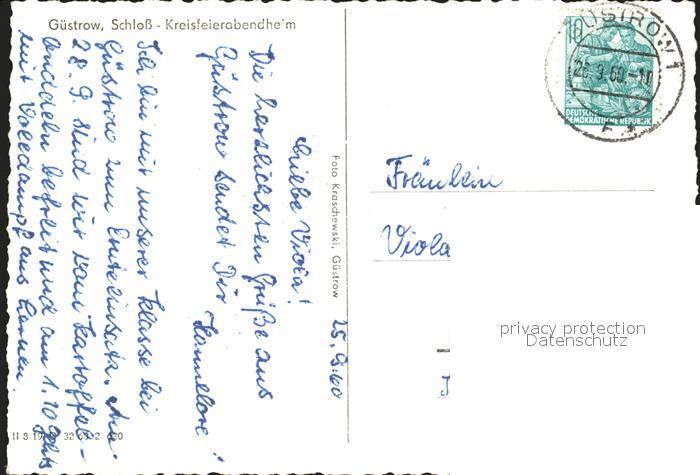 Güstrow, Schloß - Kreisfeierabendheim
25.9.60
Liebe Viola!
Die herzlichsten Grüße aus
Güstrow sendet Dir
Hannelore!
Ich bin mit unserer Klasse bei
Güstrow zum Ernteeinsatz. Am
28.9. sind wir vom Kartoffel-
buddeln befreit und am 1.10. gehts
mit Volldampf ans Lernen.
Foto Kraschewski, Güstrow
GÜSTROW 1
26.9.60.-10
10
DEUTSCHE
DEMOKRATISCHE REPUBLIK
Fräulein
Viola
privacy protection
Datenschutz